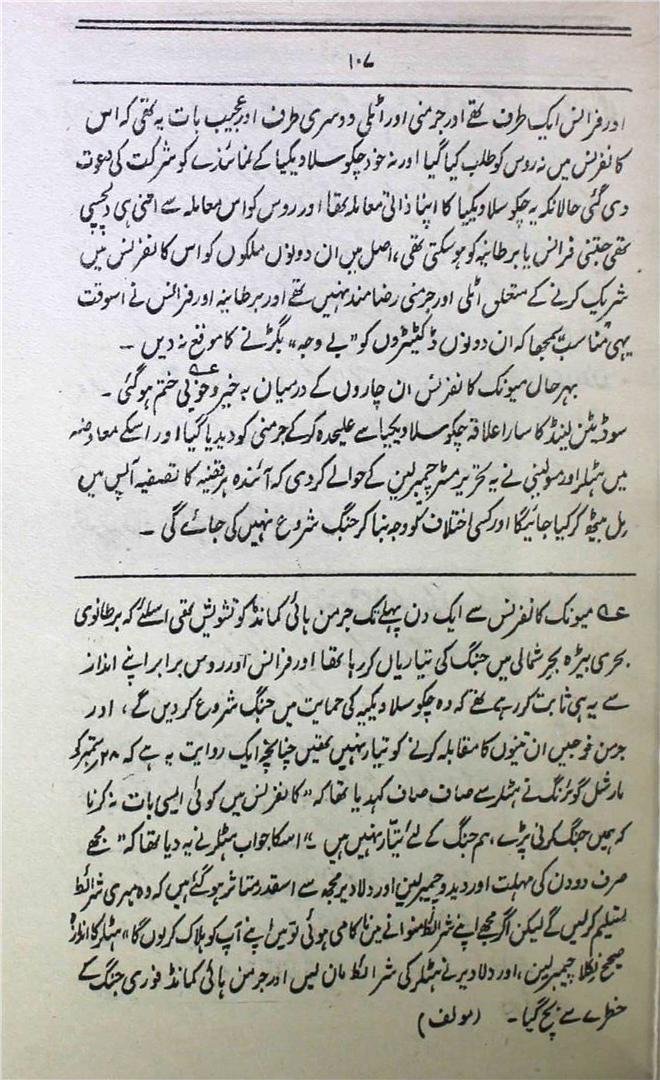 ۱۰۷
اور فرانس ایک طرف تھے اور جرمنی اور اٹلی دوسری طرف اور عجیب بات یہ تھی کہ اس
کانفرنس میں نہ روس کو طلب کیا گیا اور نہ خود چکوسلاویکیا کے نمائندے کو شرکت کی دعوت
دی گئی حالانکہ یہ چکوسلاویکیا کا اپنا ذاتی معاملہ تھا اور روس کو اس معاملہ سے اتنی ہی دلچسپی
تھی جتنی فرانس یا برطانیہ کو ہوسکتی تھی، اصل میں ان دونوں ملکوں کو اس کانفرنس میں
شریک کرنے کے متعلق اٹلی اور جرمنی رضامند نہیں تھے اور برطانیہ اور فرانس نے اسوقت
یہی مناسب سمجھا کہ ان دونوں ڈکٹیٹروں کو "بے وجہ" بگڑنے کا موقع نہ دیں ۔
بہرحال میونک کانفرنس ان چاروں کے درمیان بہ خیر و خوبی ختم ہوگئی ۔
سوڈیٹن لینڈ کا سارا علاقہ چکوسلاویکیا سے علیحدہ کرکے جرمنی کو دیدیا گیا اور اسکے معاوضہ
میں ہٹلر اور مسولینی نے یہ تحریر مسٹر چمبرلین کے حوالے کردی کہ آئندہ ہر قضیہ کا تصفیہ آپس میں
مل بیٹھ کر کیا جائیگا اور کسی اختلاف کو وجہ بنا کر جنگ شروع نہیں کی جائے گی ۔
میونک کانفرنس سے ایک دن پہلے تک جرمن ہائی کمانڈ کو تشویش تھی اسلئے کہ برطانوی
بحری بیڑہ بحر شمالی میں جنگ کی تیاریاں کررہا تھا اور فرانس اور روس برابر اپنے انداز
سے یہ ہی ثابت کررہے تھے کہ وہ چکوسلاویکیہ کی حمایت میں جنگ شروع کردیں گے، اور
جرمن فوجیں ان تینوں کا مقابلہ کرنے کو تیار نہیں تھیں چنانچہ ایک روایت یہ ہے کہ ۲۸ ستمبر کو
مارشل گوئرنگ نے ہٹلر سے صاف صاف کہدیا تھا کہ "کانفرنس میں کوئی ایسی بات نہ کرنا
کہ ہمیں جنگ کرنی پڑے، ہم جنگ کے لئے تیار نہیں ہیں" اسکا جواب ہٹلر نے یہ دیا تھا کہ "مجھے
صرف دو دن کی مہلت اور دیدو چمبرلین اور دلادیر مجھ سے اسقدر متاثر ہوگئے ہیں کہ وہ میری شرائط
تسلیم کرلیں گے لیکن اگر مجھے اپنے شرائط منوانے میں ناکامی ہوئی تو میں اپنے آپ کو ہلاک کرلوں گا" ہٹلر کا اندازہ
صحیح نکلا چیمبرلین، اور دلادیر نے ہٹلر کی شرائط مان لیں اور جرمن ہائی کمانڈ فوری جنگ کے
خطرے سے بچ گیا ۔ (مولف)